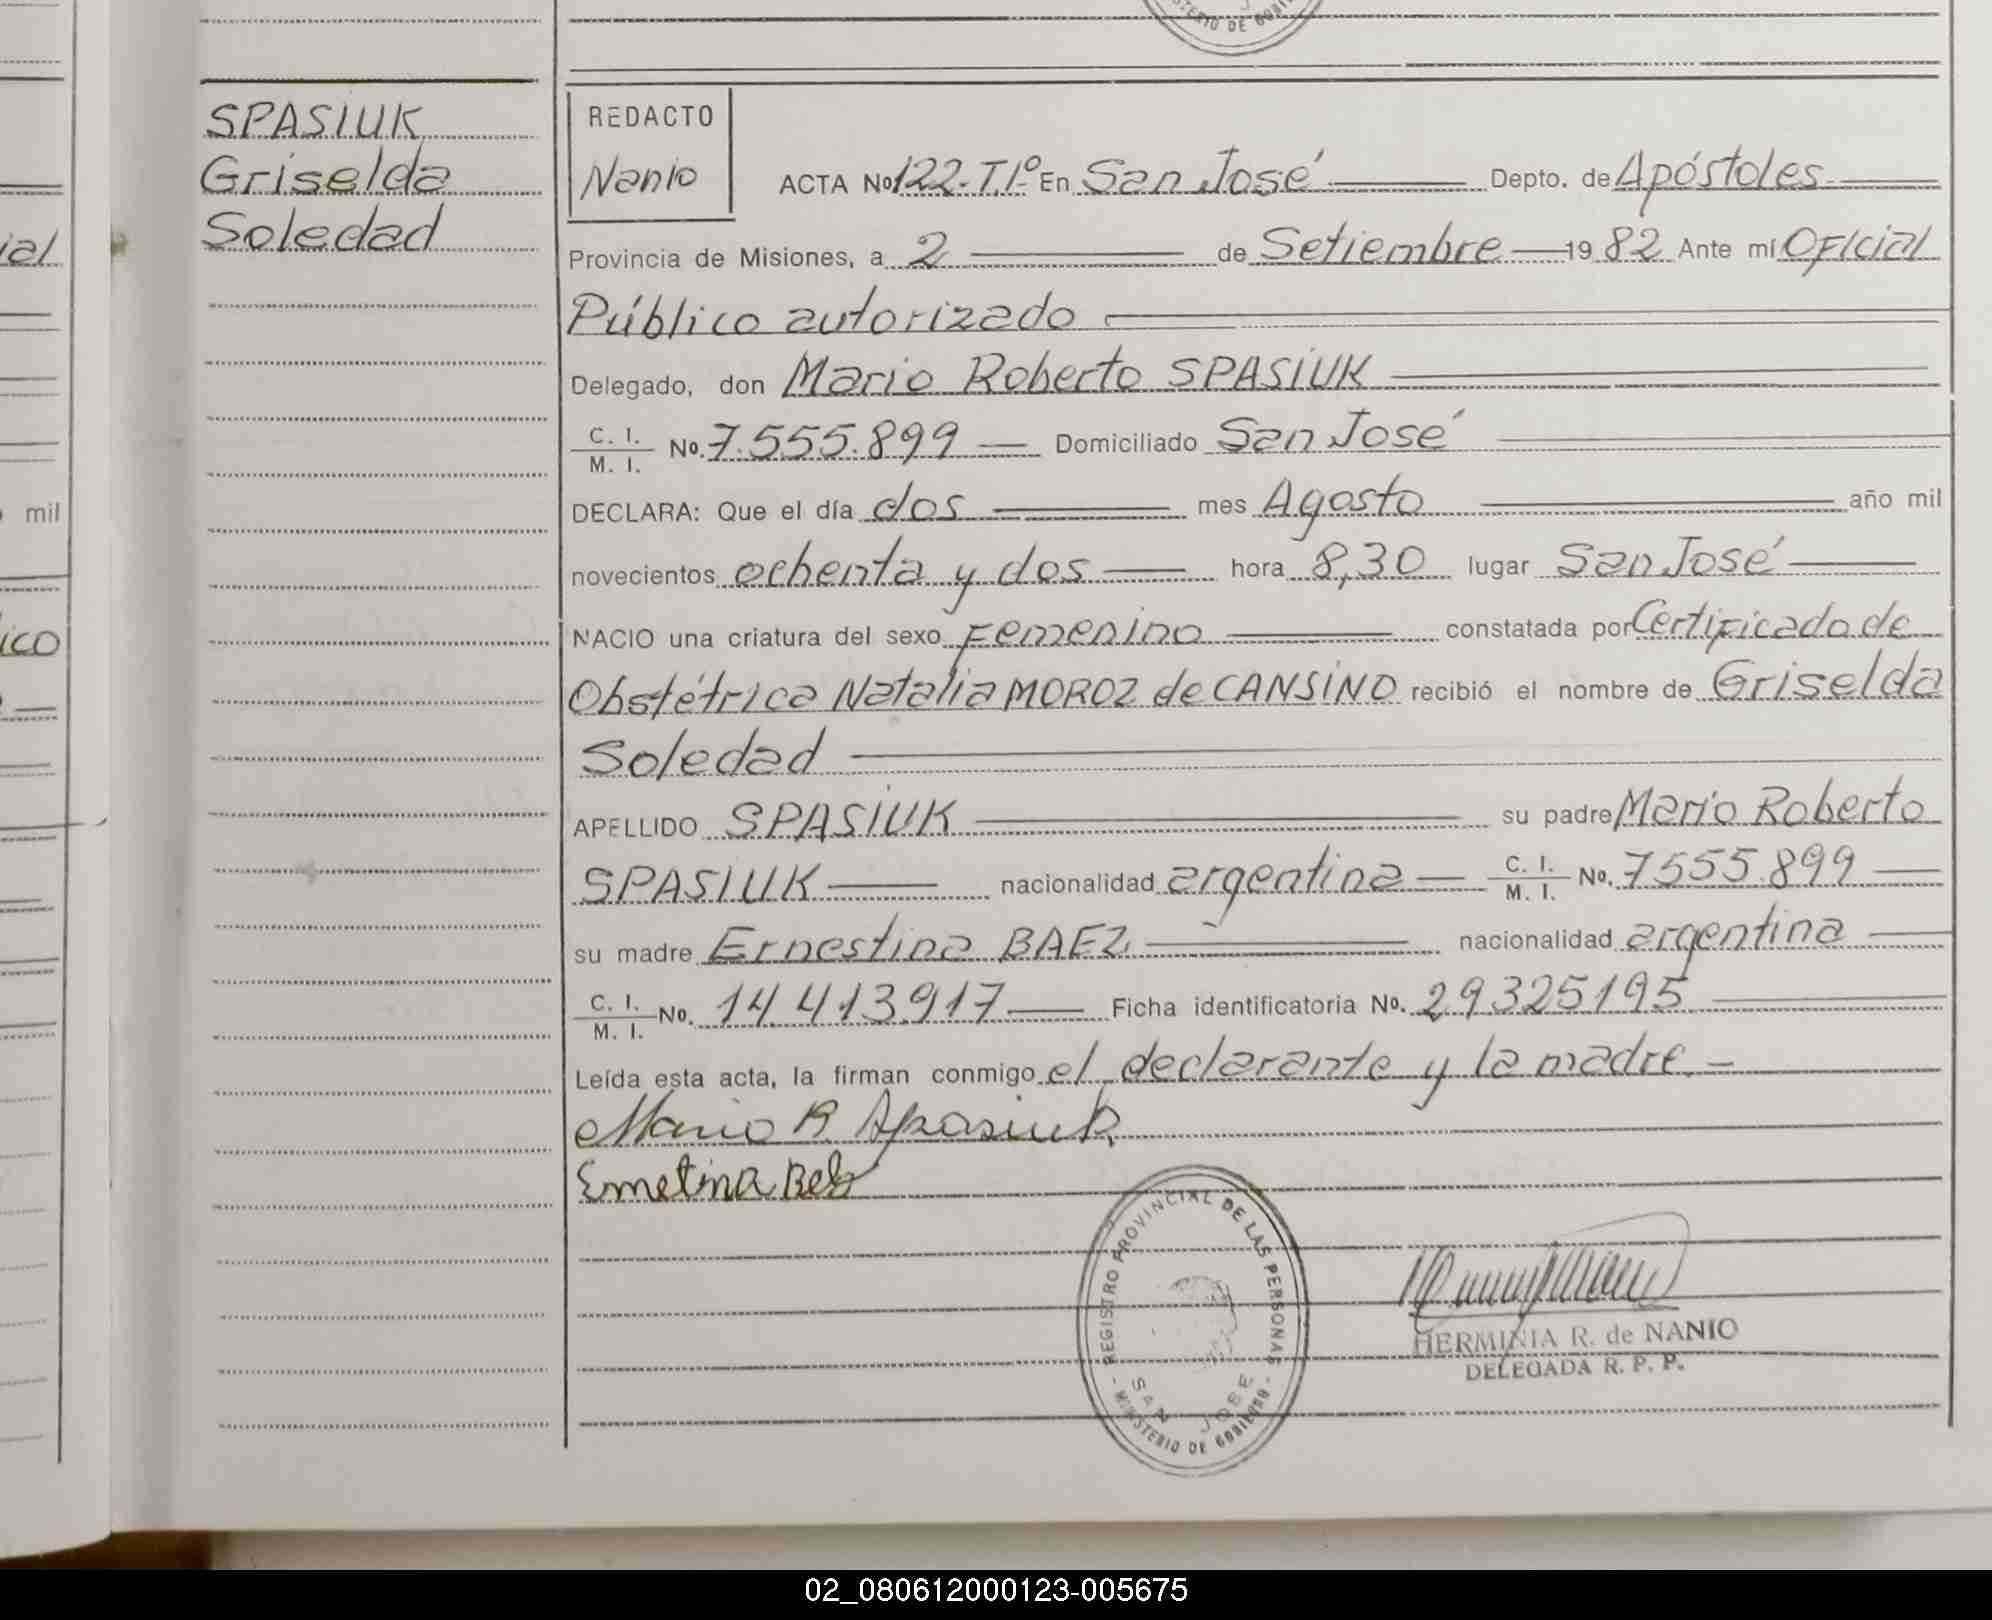 MINISTERIO DE GOBIERNO
SPASIUK
Griselda
Soledad
ial
mil
ico
REDACTO
Nanio
ACTA No 122-T.1º En San José Depto. de Apóstoles
Provincia de Misiones, a 2 de Setiembre 19 82 Ante mí Oficial
Público autorizado
Delegado, don Mario Roberto SPASIUK
C. I. / M. I. No. 7.555.899 Domiciliado San José
DECLARA: Que el día dos mes Agosto año mil
novecientos ochenta y dos hora 8,30 lugar San José
NACIO una criatura del sexo Femenino constatada por Certificado de
Obstétrica Natalia MOROZ de CANSINO recibió el nombre de Griselda
Soledad
APELLIDO SPASIUK su padre Mario Roberto
SPASIUK nacionalidad argentina C. I. / M. I. No. 7555.899
su madre Ernestina BAEZ nacionalidad argentina
C. I. / M. I. No. 14.413.917 Ficha identificatoria No. 29325195
Leída esta acta, la firman conmigo el declarante y la madre.-
Mario R. Spasiuk
REGISTRO PROVINCIAL DE LAS PERSONAS
SAN JOSE
- MINISTERIO DE GOBIERNO -
HERMINIA R. de NANIO
DELEGADA R. P. P.
02_080612000123-005675